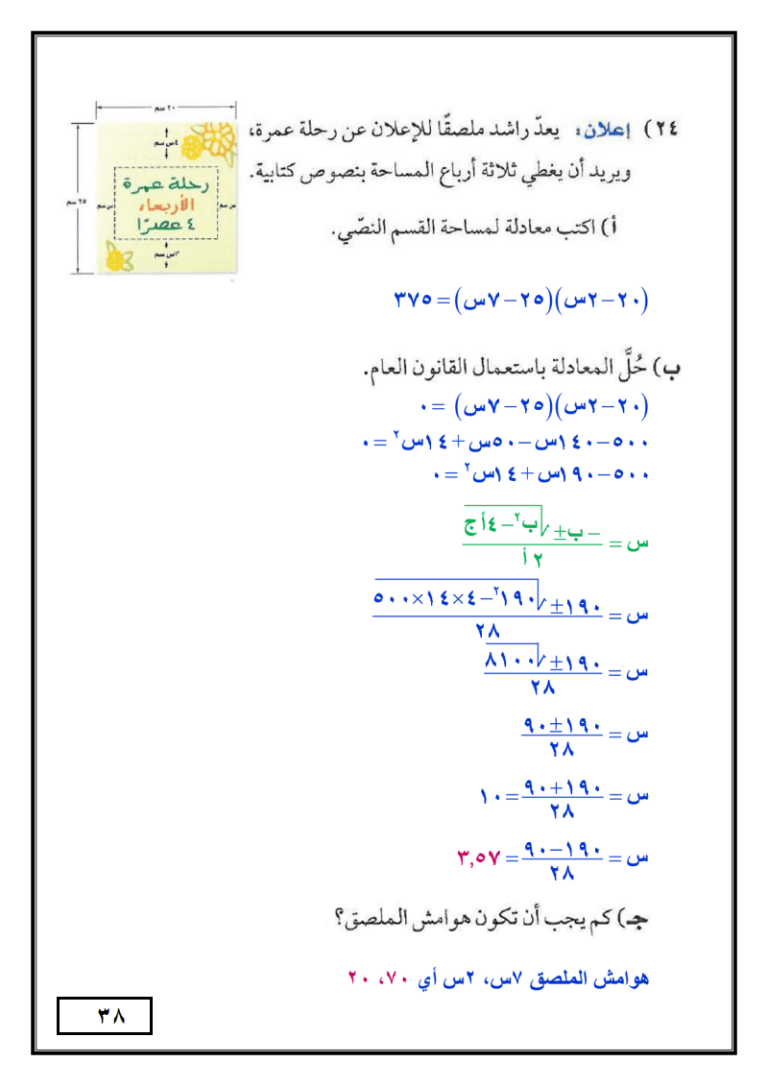 ٢٠ سم
٢٤) إعلان: يعدّ راشد ملصقًا للإعلان عن رحلة عمرة،
ويريد أن يغطي ثلاثة أرباع المساحة بنصوص كتابية.
٤س سم
رحلة عمرة
الأربعاء
٤ عصرًا
س سم
س سم
٢٥ سم
٣س سم
أ) اكتب معادلة لمساحة القسم النصّي.
(٢٠−٢س)(٢٥−٧س) = ٣٧٥
ب) حُلَّ المعادلة باستعمال القانون العام.
(٢٠−٢س)(٢٥−٧س) = ٠
٥٠٠−١٤٠س−٥٠س+١٤س٢ = ٠
٥٠٠−١٩٠س+١٤س٢ = ٠
س = −ب±√ب٢−٤أج / ٢أ
س = ١٩٠±√١٩٠٢−٤×١٤×٥٠٠ / ٢٨
س = ١٩٠±√٨١٠٠ / ٢٨
س = ١٩٠±٩٠ / ٢٨
س = ١٩٠+٩٠ / ٢٨ = ١٠
س = ١٩٠−٩٠ / ٢٨ = ٣,٥٧
جـ) كم يجب أن تكون هوامش الملصق؟
هوامش الملصق ٧س، ٢س أي ٧٠، ٢٠
٣٨